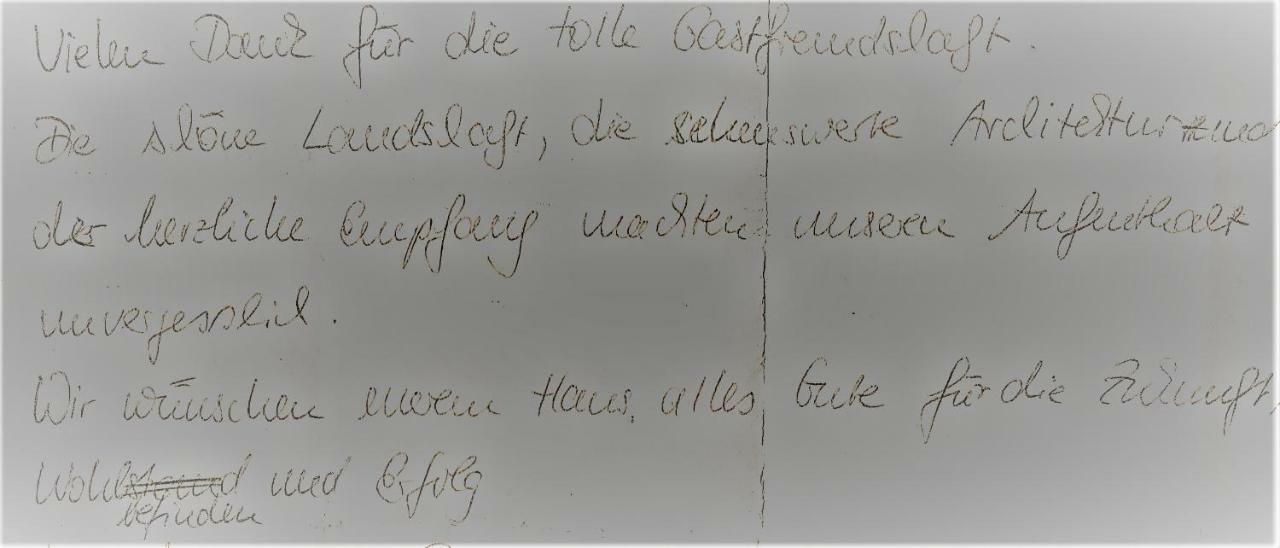 Vielen Dank für die tolle Gastfreundschaft.
Die schöne Landschaft, die sehenswerte Architektur und
der herzliche Empfang machten unseren Aufenthalt
unvergesslich.
Wir wünschen eurem Haus alles Gute für die Zukunft,
Wohlbefinden und Erfolg